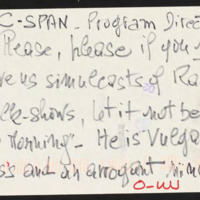 C-SPAN - Program Direc
Please, please if you
ve us simulcasts of Ra
lk-shows, let it not be
Morning"- He is Vulga
ss and an arrogant